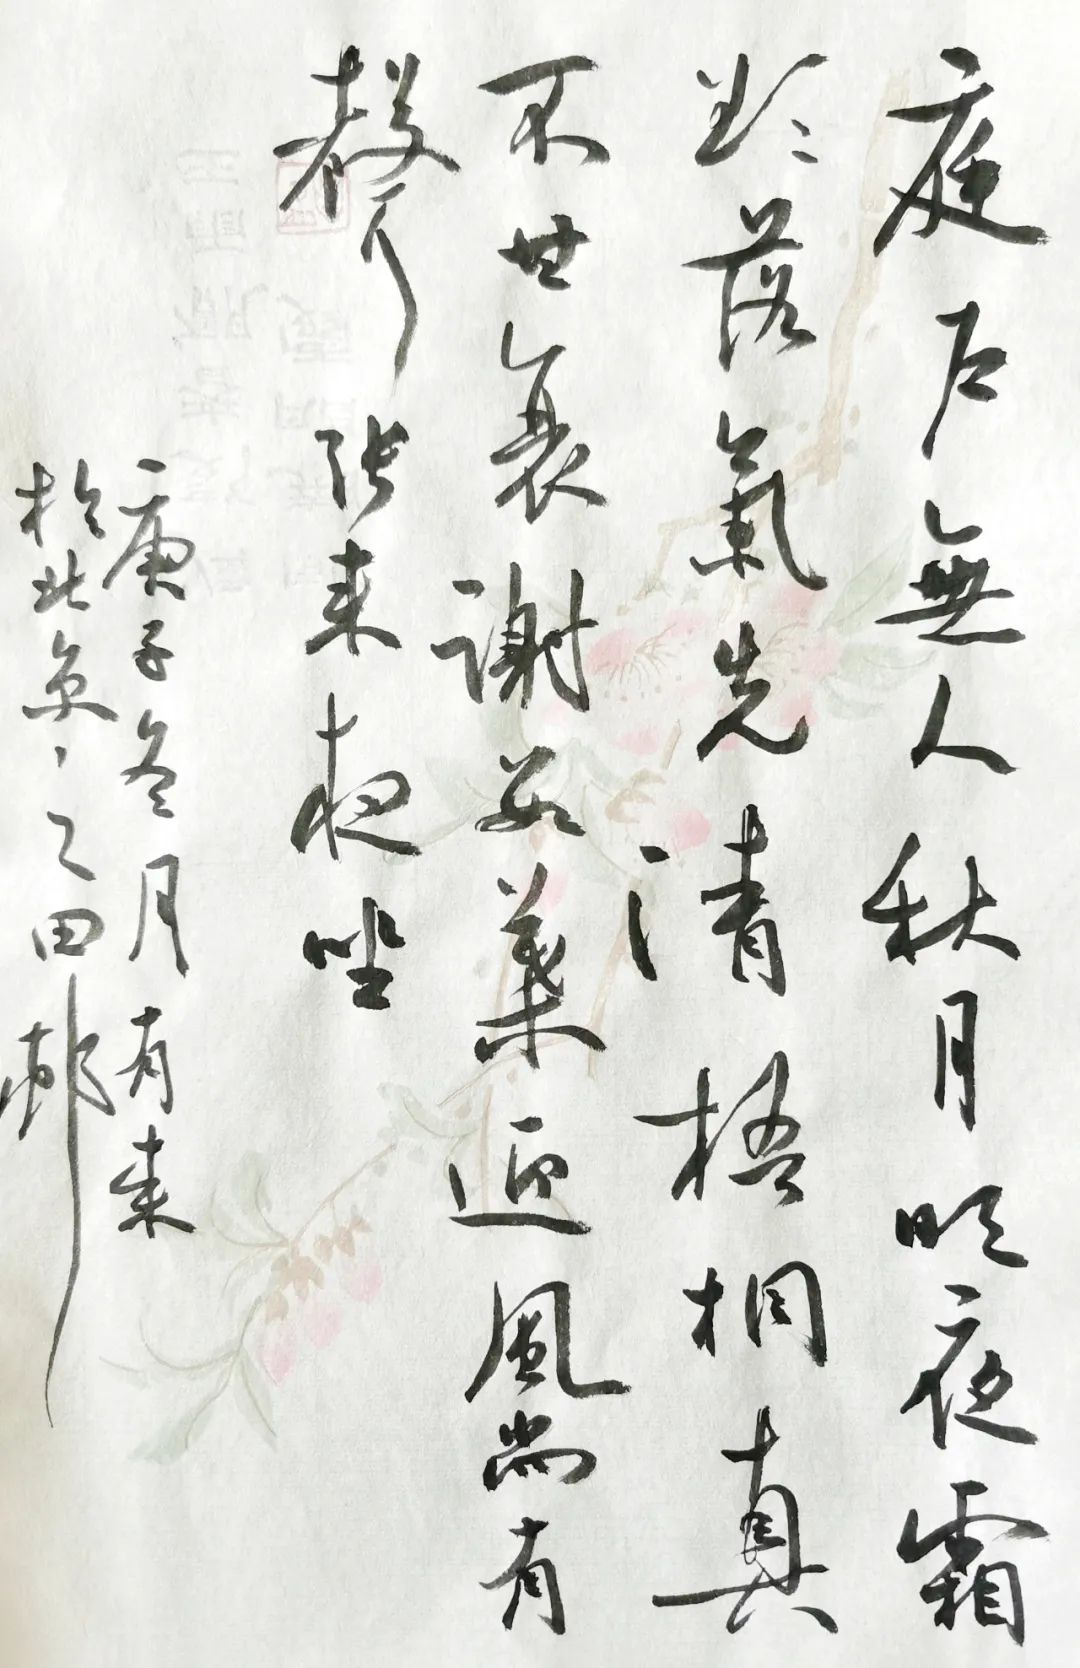 庭戶無人秋月明夜霜
欲落氣先清梧桐真
不甘衰謝数葉迎風尚有
聲 张耒夜坐
庚子冬月有来
於北京之田邨